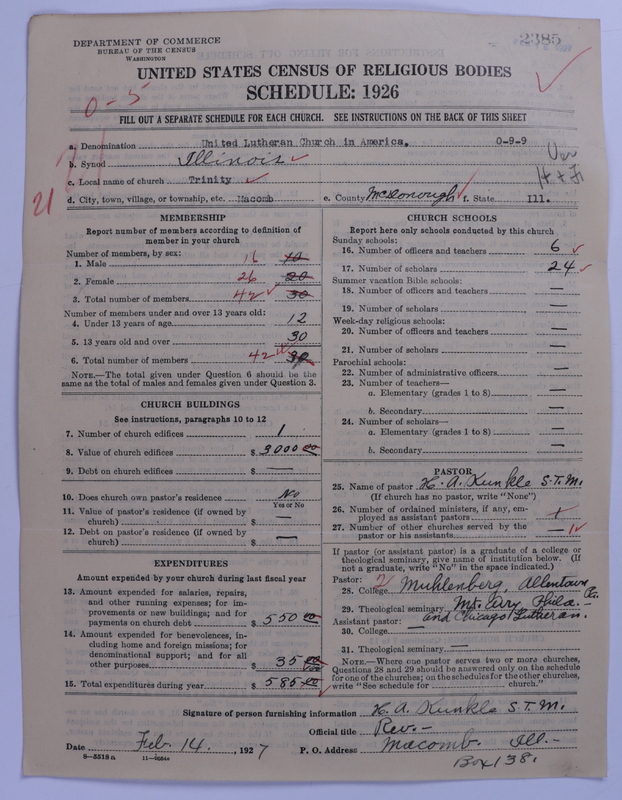 DEPARTMENT OF COMMERCE
BUREAU OF THE CENSUS
WASHINGTON
2385
UNITED STATES CENSUS OF RELIGIOUS BODIES
SCHEDULE: 1926
0-5
FILL OUT A SEPARATE SCHEDULE FOR EACH CHURCH. SEE INSTRUCTIONS ON THE BACK OF THIS SHEET
a. Denomination United Lutheran Church in America. 0-9-9
b. Synod Illinois
c. Local name of church Trinity
21
d. City, town, village, or township, etc. Macomb e. County McDonough f. State Ill.
MEMBERSHIP
Report number of members according to definition of
member in your church
Number of members, by sex:
1. Male 16 10
2. Female 26 20
3. Total number of members 42 30
Number of members under and over 13 years old:
4. Under 13 years of age 12
5. 13 years old and over 30
6. Total number of members 42 30
NOTE.—The total given under Question 6 should be the
same as the total of males and females given under Question 3.
CHURCH BUILDINGS
See instructions, paragraphs 10 to 12
7. Number of church edifices 1
8. Value of church edifices $ 3000 00
9. Debt on church edifices $ —
10. Does church own pastor's residence No
Yes or No
11. Value of pastor's residence (if owned by
church) $ —
12. Debt on pastor's residence (if owned by
church) $ —
EXPENDITURES
Amount expended by your church during last fiscal year
13. Amount expended for salaries, repairs,
and other running expenses; for im-
provements or new buildings; and for
payments on church debt $ 550 00
14. Amount expended for benevolences, in-
cluding home and foreign missions; for
denominational support; and for all
other purposes $ 35 00
15. Total expenditures during year $ 585 00
CHURCH SCHOOLS
Report here only schools conducted by this church
Sunday schools:
16. Number of officers and teachers 6
17. Number of scholars 24
Summer vacation Bible schools:
18. Number of officers and teachers —
19. Number of scholars —
Week-day religious schools:
20. Number of officers and teachers —
21. Number of scholars —
Parochial schools:
22. Number of administrative officers —
23. Number of teachers—
a. Elementary (grades 1 to 8) —
b. Secondary —
24. Number of scholars—
a. Elementary (grades 1 to 8) —
b. Secondary —
PASTOR
25. Name of pastor H. A. Kunkle S.T.M.
(If church has no pastor, write "None")
26. Number of ordained ministers, if any, em-
ployed as assistant pastors
27. Number of other churches served by the
pastor or his assistants —
If pastor (or assistant pastor) is a graduate of a college or
theological seminary, give name of institution below. (If
not a graduate, write "No" in the space indicated.)
Pastor:
28. College 2 Muhlenberg, Allentown Pa.
29. Theological seminary Mt. Airy Phila. —
Assistant pastor: and Chicago Lutheran.
30. College —
31. Theological seminary —
NOTE.—Where one pastor serves two or more churches,
Questions 28 and 29 should be answered only on the schedule
for one of the churches; on the schedules for the other churches,
write "See schedule for church."
Signature of person furnishing information H. A. Kunkle S.T.M.
Official title Rev.—
Date Feb. 14., 1927 P. O. Address Macomb. Ill.—
8—5518a 11—9054a
Box 138.